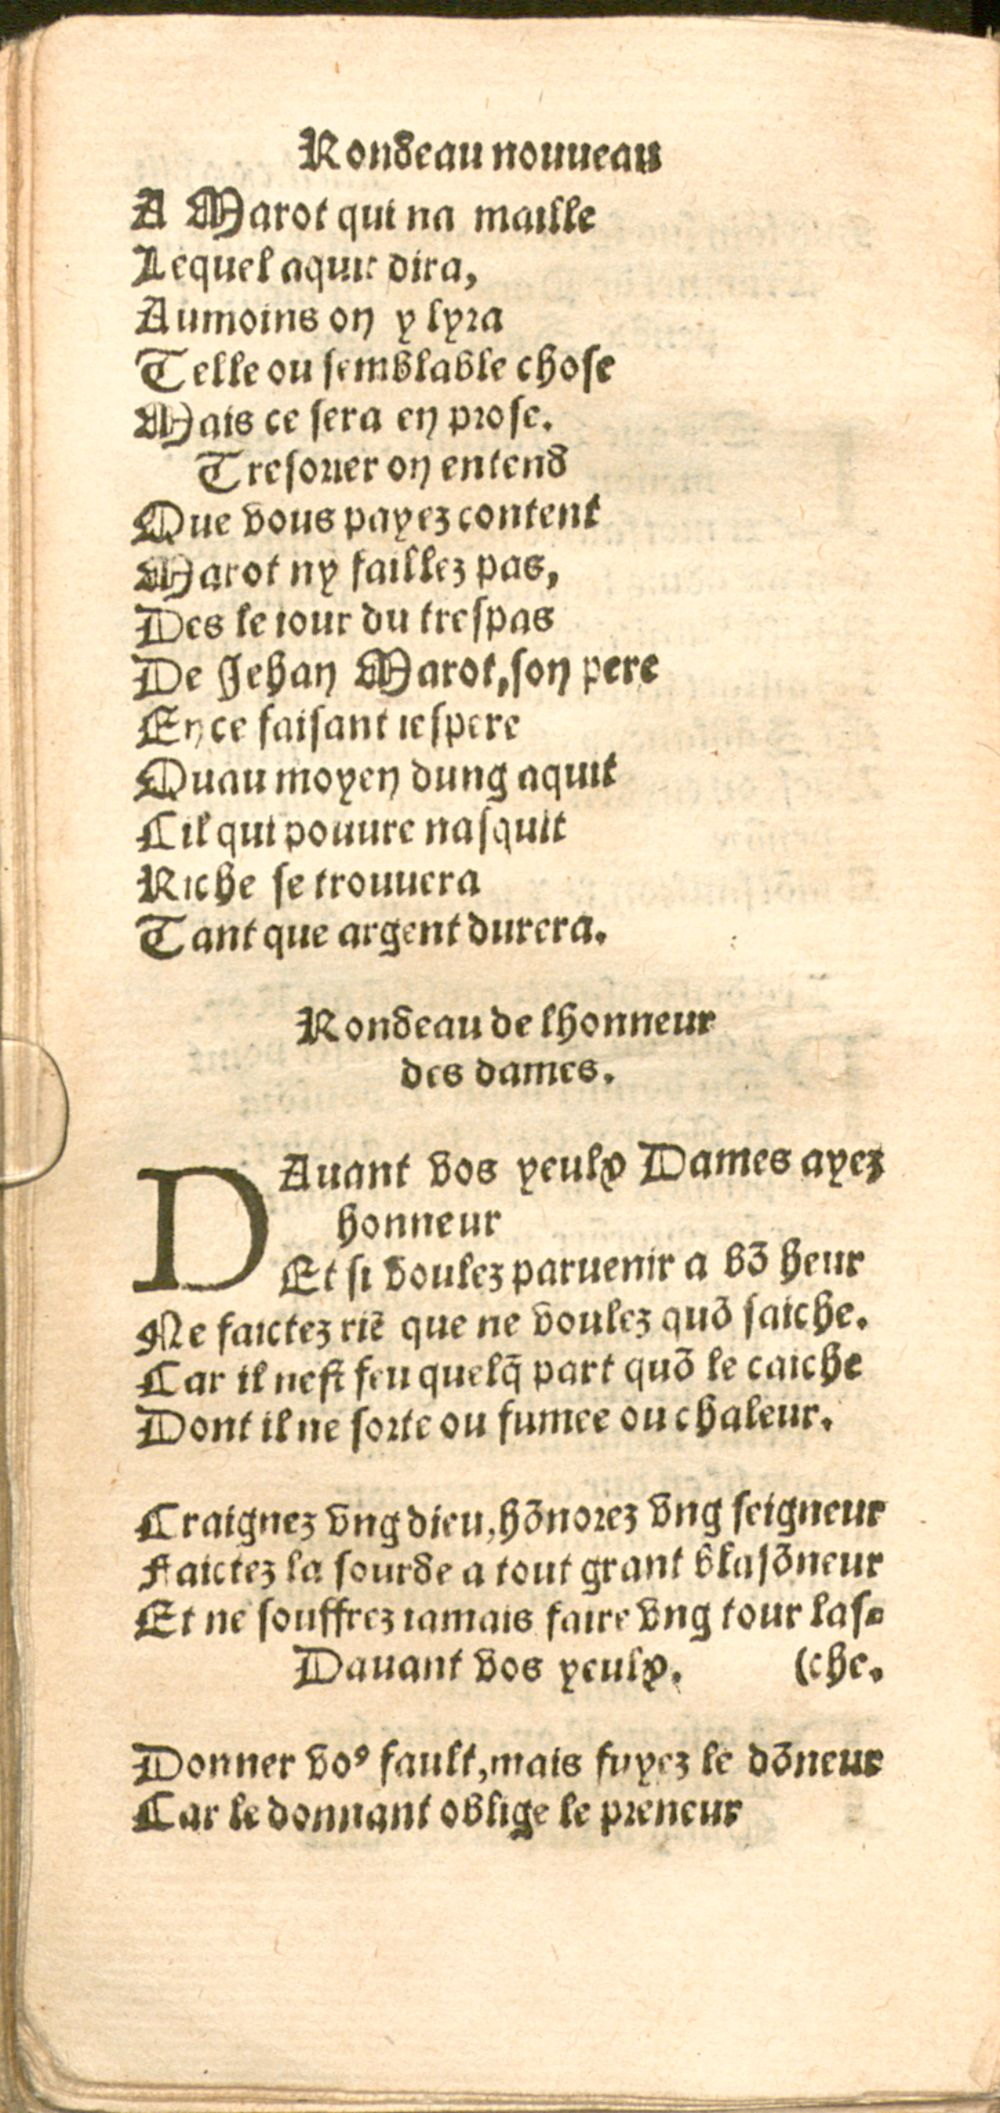 Rondeau nouueau
A Marot qui na maille
Lequel aquit dira,
Aumoins on y lyra
Telle ou semblable chose
Mais ce sera en prose.
Tresorier on entend
Que vous payez content
Marot ny faillez pas,
Des le iour du trespas
De Jehan Marot, son pere
En ce faisant iespere
Quau moyen dung aquit
Cil qui pouure nasquit
Riche se trouuera
Tant que argent durera.
Rondeau de lhonneur
des dames.
DAuant vos yeulx Dames ayez
honneur
Et si voulez paruenir a bõ heur
Ne faictez riẽ que ne voulez quõ saiche.
Car il nest feu quelq̃ part quõ le caiche
Dont il ne sorte ou fumee ou chaleur.
Craignez vng dieu, hõnorez vng seigneur
Faictez la sourde a tout grant blasõneur
Et ne souffrez iamais faire vng tour las-
Dauant vos yeulx. (che.
Donner voꝰ fault, mais fuyez le dõneur
Car le donnant oblige le preneur